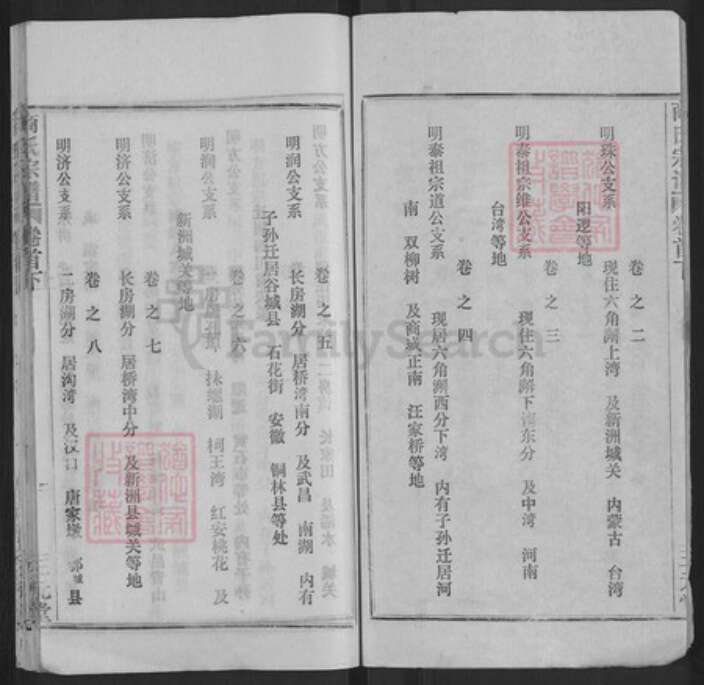 卷之二
明珠公支系 现住六角澥上湾 及新洲城关 内蒙古 台湾
阳逻等地
卷之三
明泰祖宗维公支系 现住六角澥下 东分 及中湾 河南
台湾等地
卷之四
明泰祖宗道公支系 现居六角澥西分下湾 内有子孙迁居河
南 双柳树 及商城正南 汪家桥等地
卷之五
明润公支系 长房湖分 居桥湾南分 及武昌 南湖 内有
子孙迁居谷城县 石花街 安徽 铜林县等处
卷之六
明润公支系 柯王湾 红安桃花 及
新洲城关等地
卷之七
明济公支系 长房湖分 居桥湾中分 及新洲县城关等地
卷之八
明济公支系 二房湖分 居沟湾 及汉口 唐家墩 县
宗谱 卷首下
三元堂
FamilySearch